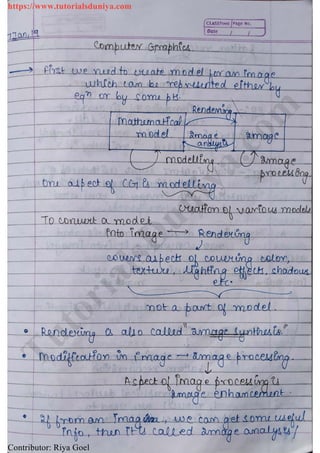 https://www.tutorialsduniya.com
CLASSTIME Page No.
Date / /
7 Jan, 19
Computer Graphics
→ first we need to create model for an image
which can be represented either by
eqⁿ or by some pt.
Rendering
Mathematical model
Image analysis
Image
modelling
Image processing
One aspect of CG is modelling
creation of various models
To convert a model
into image → Rendering
covers aspects of covering color,
texture, lighting effects, shadows
etc.
not a part of model.
• Rendering is also called "image synthesis"
• Modification in image → Image processing.
Aspect of image processing is
image enhancement.
• If from an image, we can get some useful
info, then it is called image analysis/
Contributor: Riya Goel